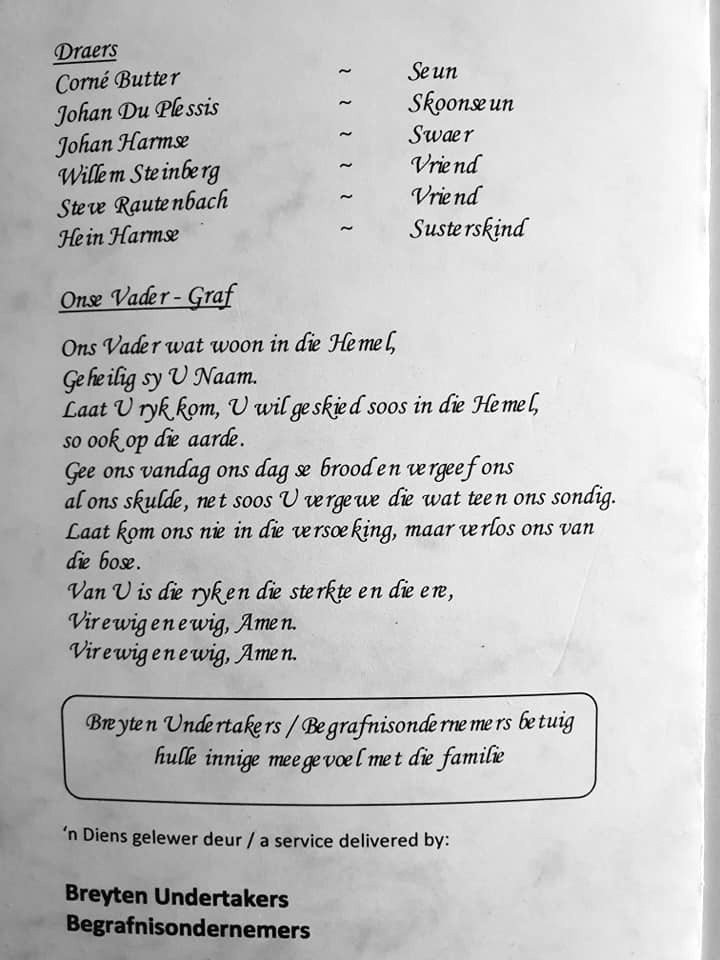 Draers
Corné Butter ~ Seun
Johan Du Plessis ~ Skoonseun
Johan Harmse ~ Swaer
Willem Steinberg ~ Vriend
Steve Rautenbach ~ Vriend
Hein Harmse ~ Susterskind
Onse Vader - Graf
Ons Vader wat woon in die Hemel,
Geheilig sy U Naam.
Laat U ryk kom, U wil geskied soos in die Hemel,
so ook op die aarde.
Gee ons vandag ons dag se brood en vergeef ons
al ons skulde, net soos U vergewe die wat teen ons sondig.
Laat kom ons nie in die versoeking, maar verlos ons van
die bose.
Van U is die ryk en die sterkte en die ere,
Vir ewig en ewig, Amen.
Vir ewig en ewig, Amen.
Breyten Undertakers / Begrafnisondernemers betuig
hulle innige meegevoel met die familie
'n Diens gelewer deur / a service delivered by:
Breyten Undertakers
Begrafnisondernemers